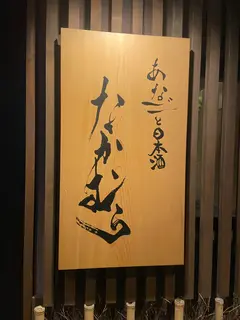 あなごと日本酒
なかむら